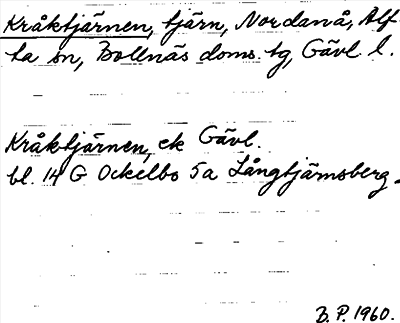 Kråktjärnen, tjärn, Nordanå, Alf-
ta sn, Bollnäs doms. tg, Gävl. l.
Kråktjärnen, ek Gävl.
bl. 14 G Ockelbo 5a Långtjärnsberg.
B.P. 1960.